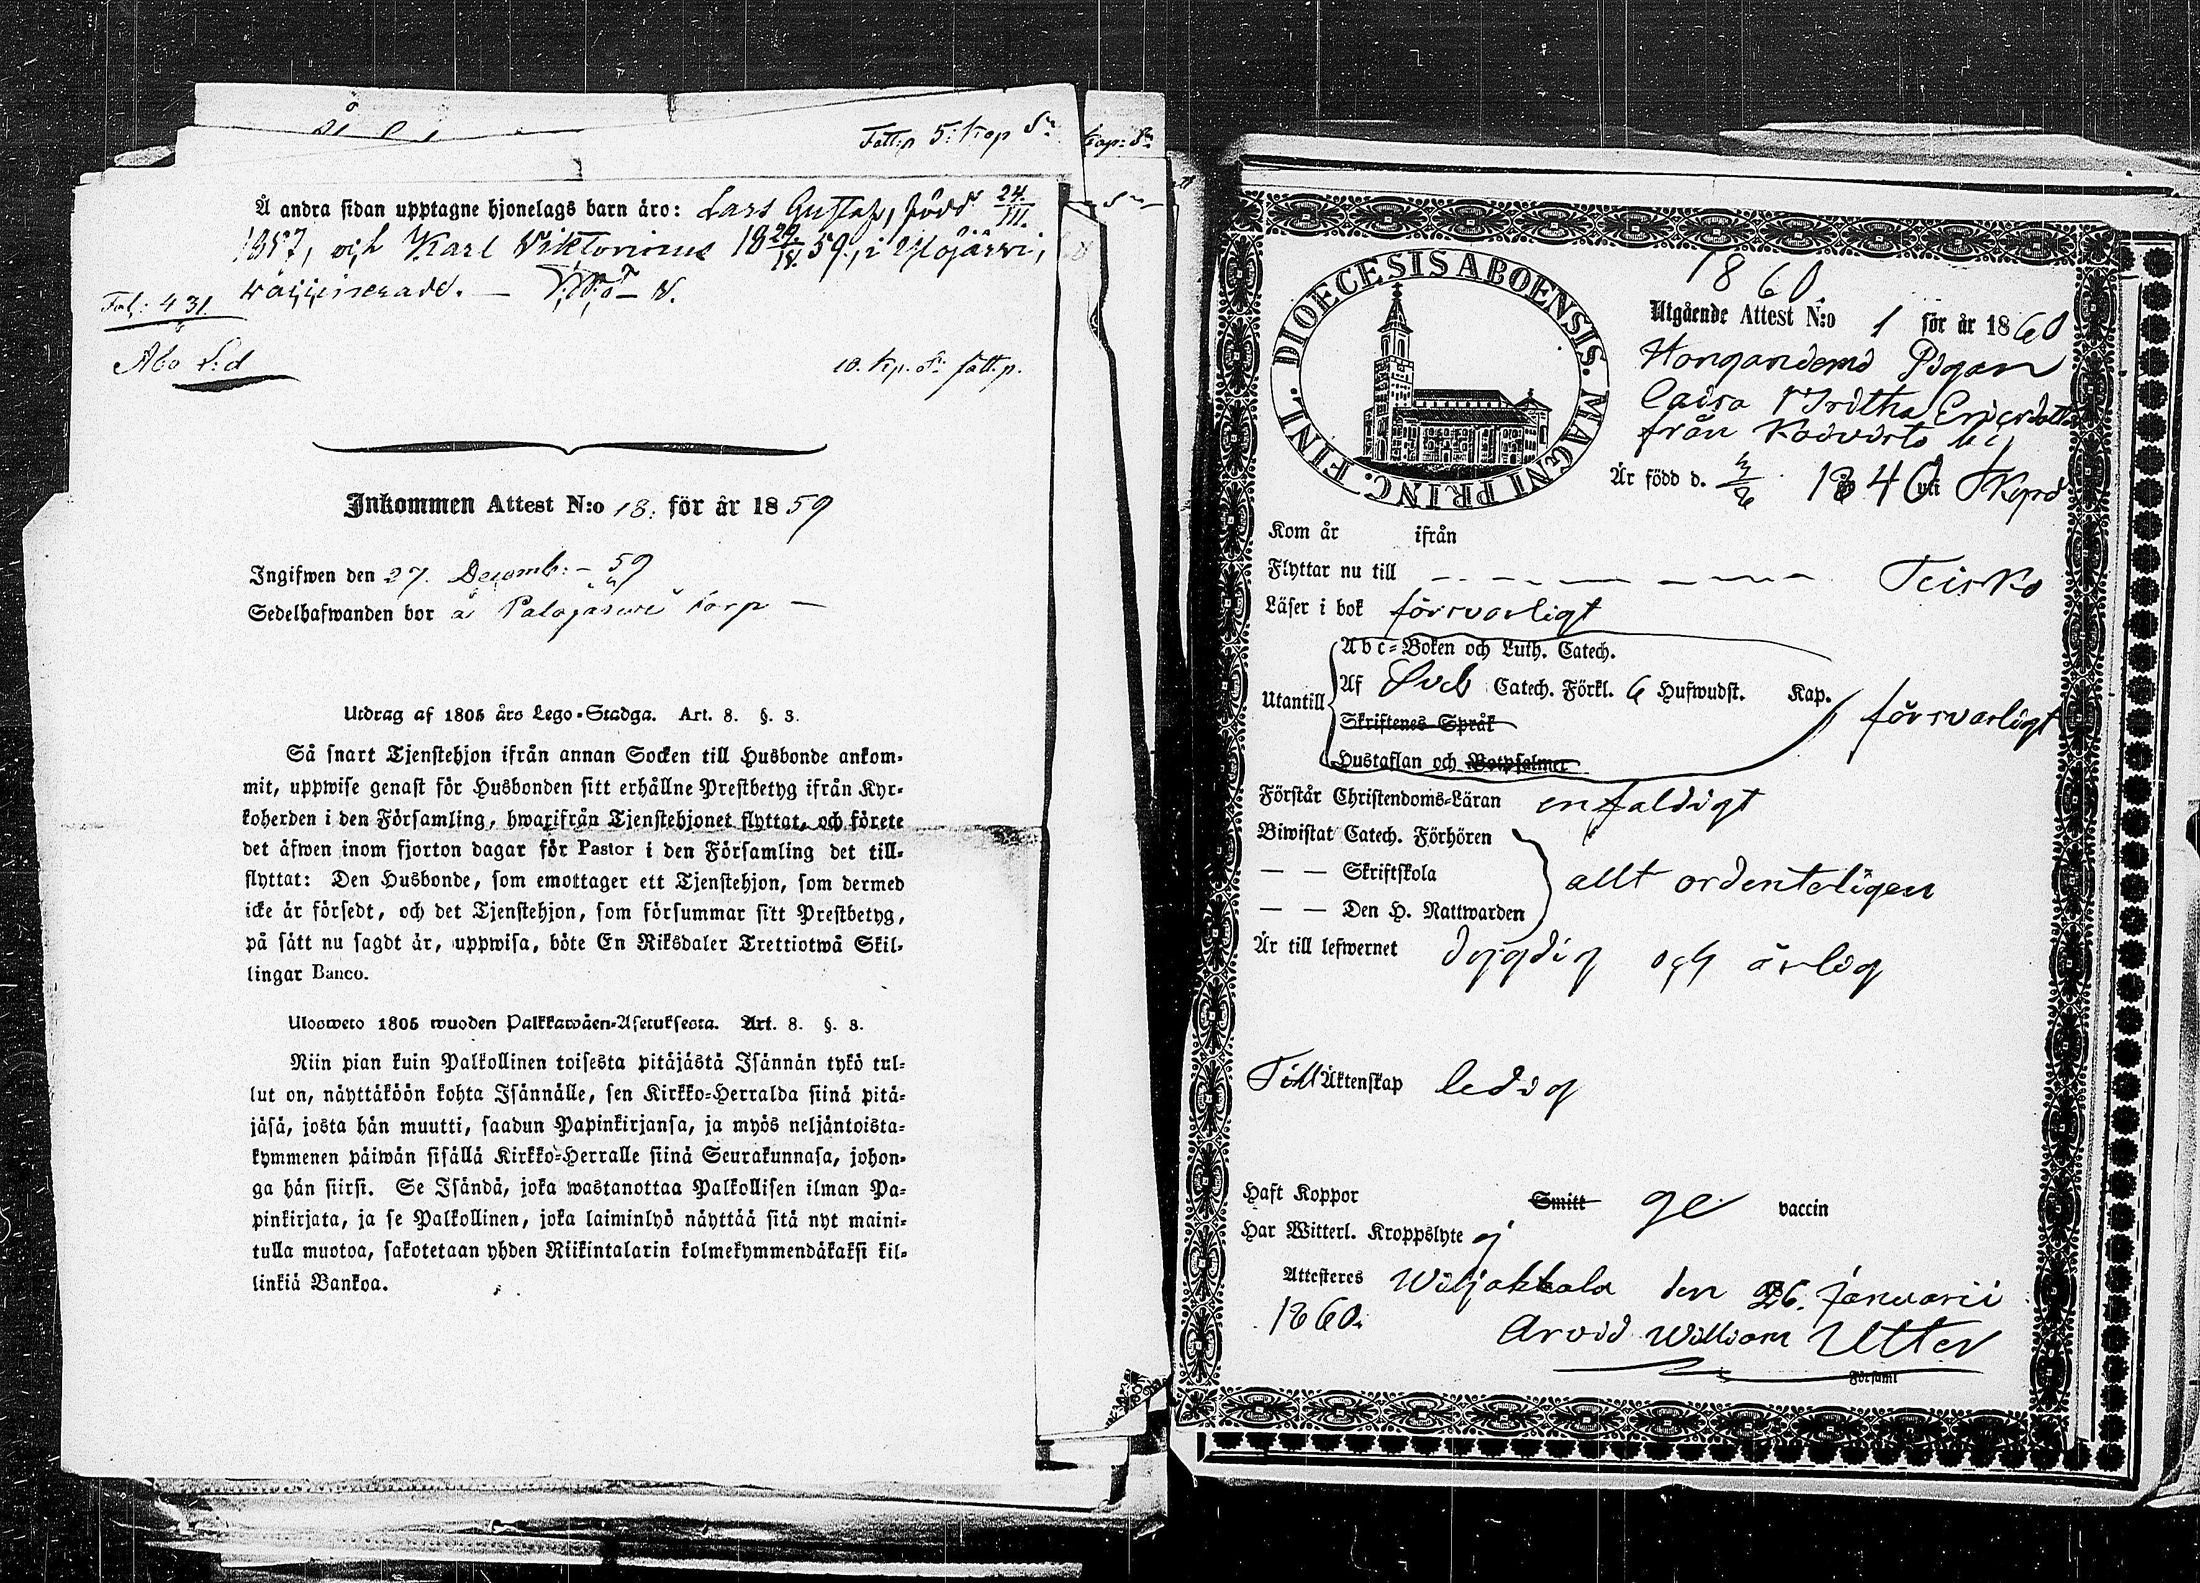 Fatt:p 5: kop Sr
kop: Sr
Å andra sidan upptagne hjonelags barn äro: Lars Gustaf, född 24/III.
1857, och Karl Viktorinus 18 29/IV. 59., i Ylöjärvi,
vaccinerade. —
Fol: 431
Åbo S:d
10. kp. Sr fatt.p.
Inkommen Attest N:o 18: för år 1859
Ingifwen den 27. Decemb: – 59
Sedelhafwanden bor å Palojärvi torp —
Utdrag af 1805 års Lego-Stadga. Art. 8. §. 3.
Så snart Tjenstehjon ifrån annan Socken till Husbonde ankom-
mit, uppwise genast för Husbonden sitt erhållne Prestbetyg ifrån Kyr-
koherden i den Församling, hwarifrån Tjenstehjonet flyttat, och förete
det äfwen inom fjorton dagar för Pastor i den Församling det till-
flyttat: Den Husbonde, som emottager ett Tjenstehjon, som dermed
icke är försedt, och det Tjenstehjon, som försummar sitt Prestbetyg,
på sätt nu sagdt är, uppwisa, böte En Riksdaler Trettiotwå Skil-
lingar Banco.
Ulosweto 1805 wuoden Palkkawäen-Asetuksesta. Art. 8. §. 3.
Niin pian kuin Palkollinen toisesta pitäjästä Isännän tykö tul-
lut on, näyttäköön kohta Isännälle, sen Kirkko-Herralda siinä pitä-
jäsä, josta hän muutti, saadun Papinkirjansa, ja myös neljäntoista-
kymmenen päiwän sisällä Kirkko-Herralle siinä Seurakunnasa, johon-
ga hän siirsi. Se Isändä, joka wastanottaa Palkollisen ilman Pa-
pinkirjata, ja se Palkollinen, joka laiminlyö näyttää sitä nyt maini-
tulla muotoa, sakotetaan yhden Riikintalarin kolmekymmendäkaksi kil-
linkiä Bankoa.
DIOECESIS ABOENSIS. MAGNI PRINC. FINL.
1860
Utgående Attest N:o 1 för år 1860
Hongandems Pigan
Caisa Gretha Ericsdotter
från Koivisto by
Är född d. 3/6 1840 uti Skpd
Kom år ifrån
Flyttar nu till Teisko
Läser i bok försvarligt
Utantill
Abc-Boken och Luth. Catech.
Af Sveb Catech. Förkl. 6 Hufwudst. Kap.
Skriftenes Språk
Hustaflan och Botpsalmer
försvarligt
Förstår Christendoms-Läran enfaldigt
Biwistat Catech. Förhören
— — Skriftskola allt ordenteligen
— — Den H. Nattwarden
Är till lefwernet dygdig och ärlig
Till Äktenskap ledig
Haft Koppor Smitt ge vaccin
Har Witterl. Kroppslyte ej
Attesteres Wiljakkala den 26. Januarii
1860.
Arvid William Utter
Församl